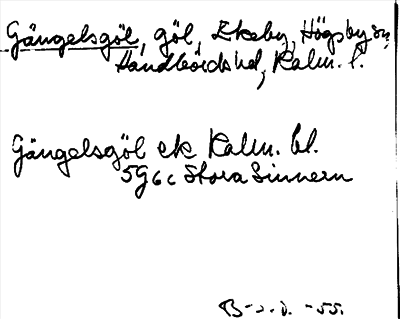 Gängelsgöl, göl, Ekeby, Högsby sn,
Handbörds hd, Kalm. l.
Gängelsgöl ek Kalm. bl.
5G6c Stora Sinnern
-55.